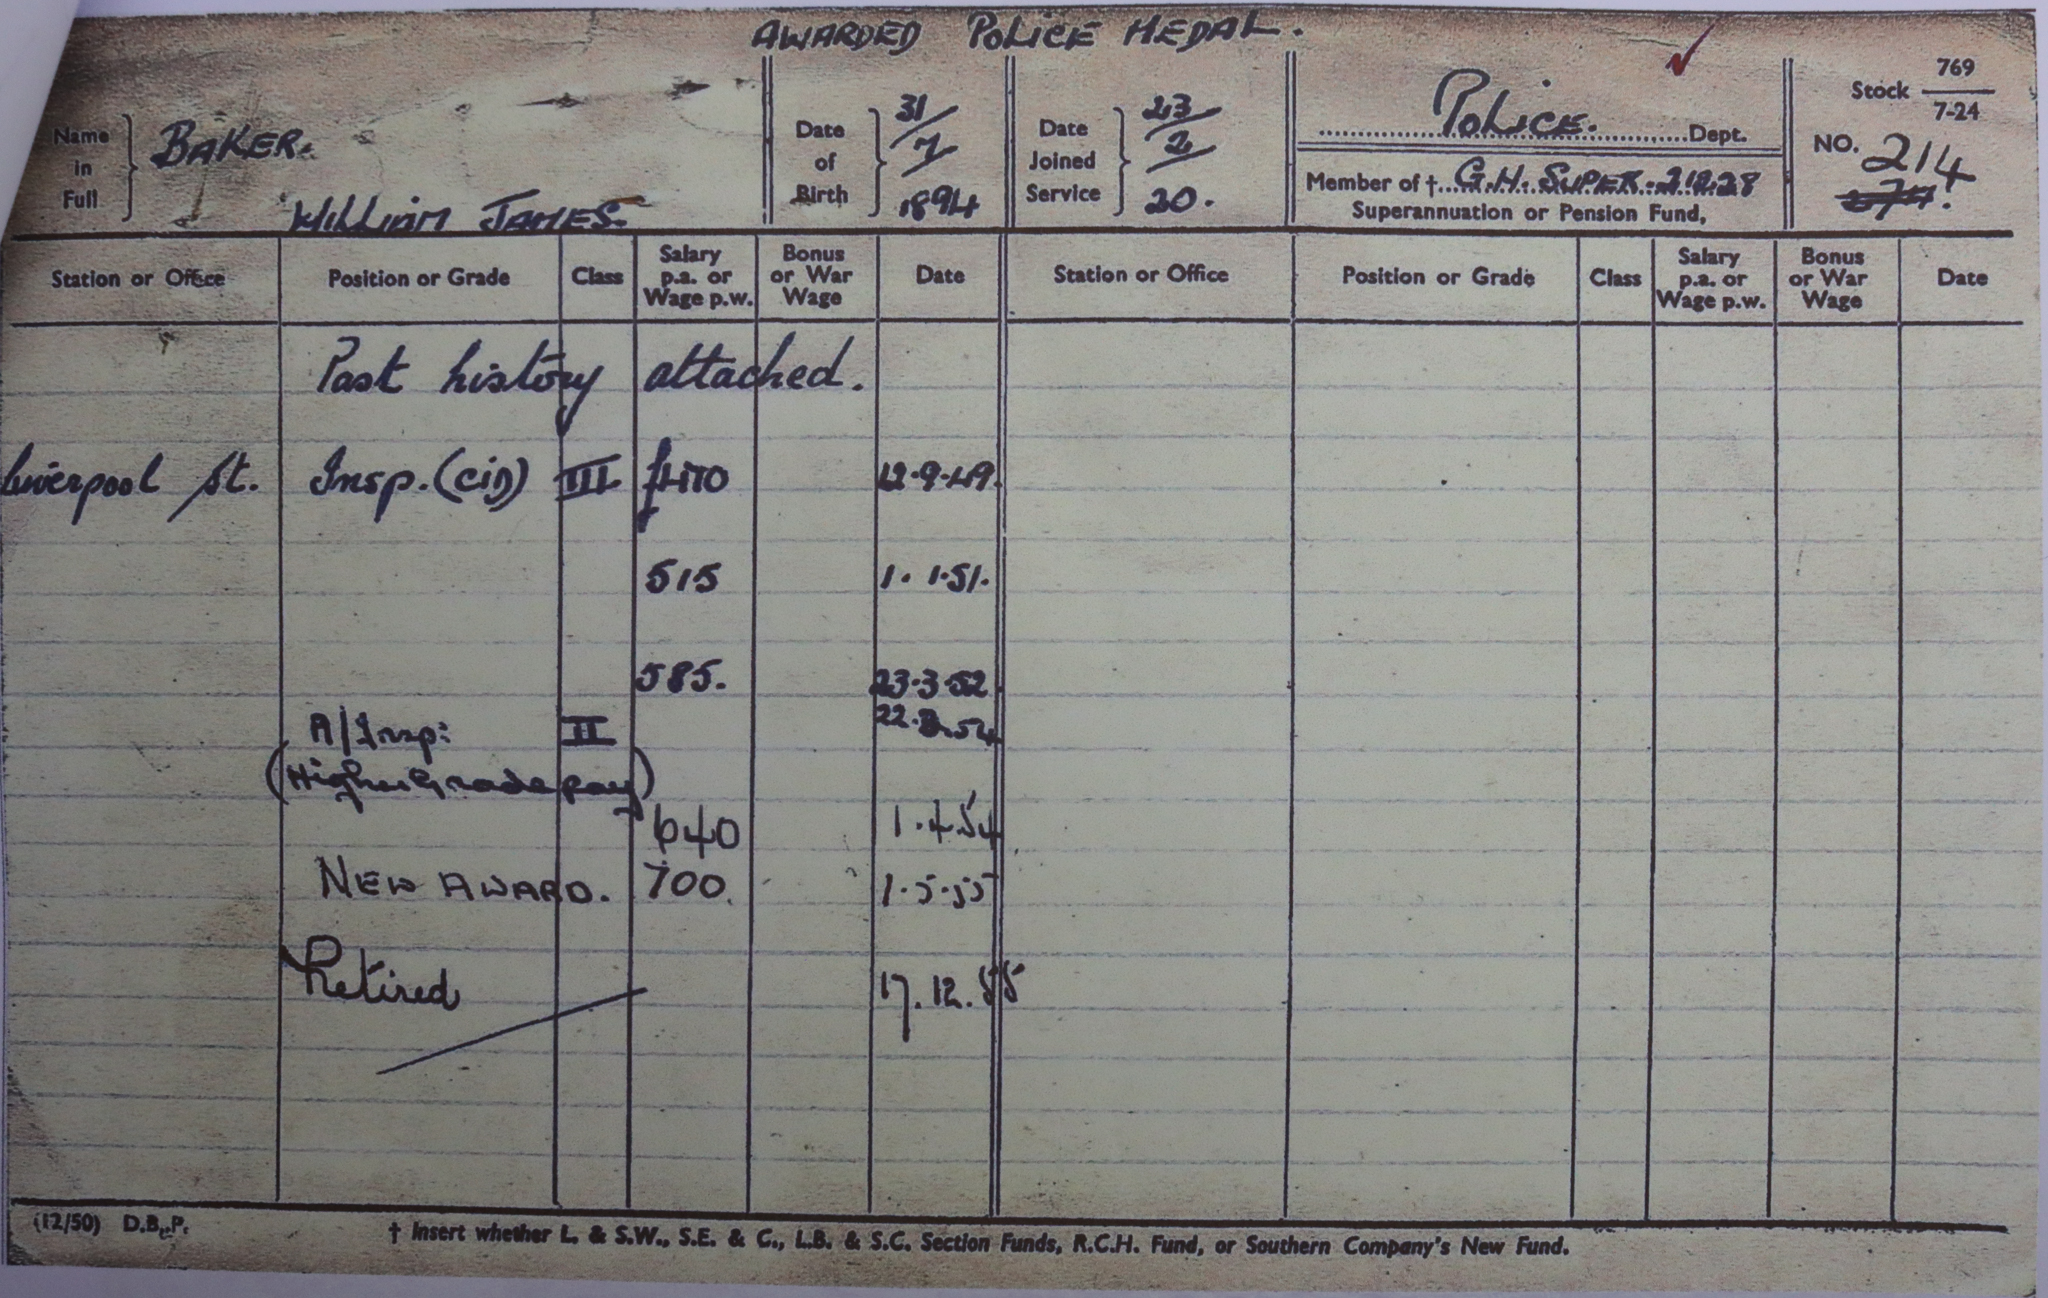 AWARDED POLICE MEDAL.
Name in Full } BAKER.
WILLIAM JAMES.
Date of Birth } 31/7/1894
Date Joined Service } 23/2/20.
Police. Dept.
Member of † G.H. SUPER. 28
Superannuation or Pension Fund,
Stock 769/7-24
NO. 214
Station or Office Position or Grade Class Salary p.a. or Wage p.w. Bonus or War Wage Date Station or Office Position or Grade Class Salary p.a. or Wage p.w. Bonus or War Wage Date
Past history attached.
Liverpool St. Insp. (CID) III £470 12.9.49.
515 1.1.51.
585. 23.3.52
A/Insp: II 22.3.54
(Higher Grade pay)
640 1.4.54
NEW AWARD. 700. 1.5.55
Retired 17.12.55
(12/50) D.B.,P.
† Insert whether L. & S.W., S.E. & C., L.B. & S.C. Section Funds, R.C.H. Fund, or Southern Company's New Fund.